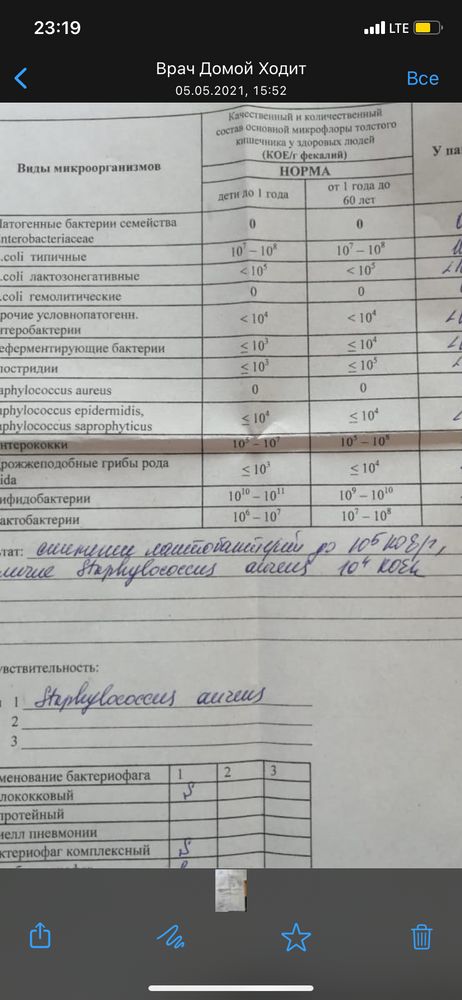 23:19
LTE
Врач Домой Ходит
05.05.2021, 15:52
Все
Качественный и количественный
состав основной микрофлоры толстого
кишечника у здоровых людей
(КОЕ/г фекалий)
Виды микроорганизмов
У па
НОРМА
дети до 1 года
от 1 года до
60 лет
Патогенные бактерии семейства
nterobacteriaceae
0
0
.coli типичные
10⁷ – 10⁸
10⁷ – 10⁸
.coli лактозонегативные
< 10⁵
< 10⁵
.coli гемолитические
0
0
рочие условнопатогенн.
нтеробактерии
< 10⁴
< 10⁴
еферментирующие бактерии
≤ 10³
≤ 10⁴
лостридии
≤ 10³
≤ 10⁵
aphylococcus aureus
0
0
aphylococcus epidermidis,
aphylococcus saprophyticus
≤ 10⁴
≤ 10⁴
нтерококки
10⁵ – 10⁷
10⁵ – 10⁸
дрожжеподобные грибы рода
ida
≤ 10³
≤ 10⁴
ифидобактерии
10¹⁰ – 10¹¹
10⁹ – 10¹⁰
актобактерии
10⁶ – 10⁷
10⁷ – 10⁸
тат: снижение лактобактерий до 10⁵ КОЕ/г,
личие Staphylococcus aureus 10⁴ КОЕ/г
увствительность:
1 Staphylococcus aureus
2
3
менование бактериофага
1
2
3
лококковый
S
протейный
иелл пневмонии
ктериофаг комплексный
S